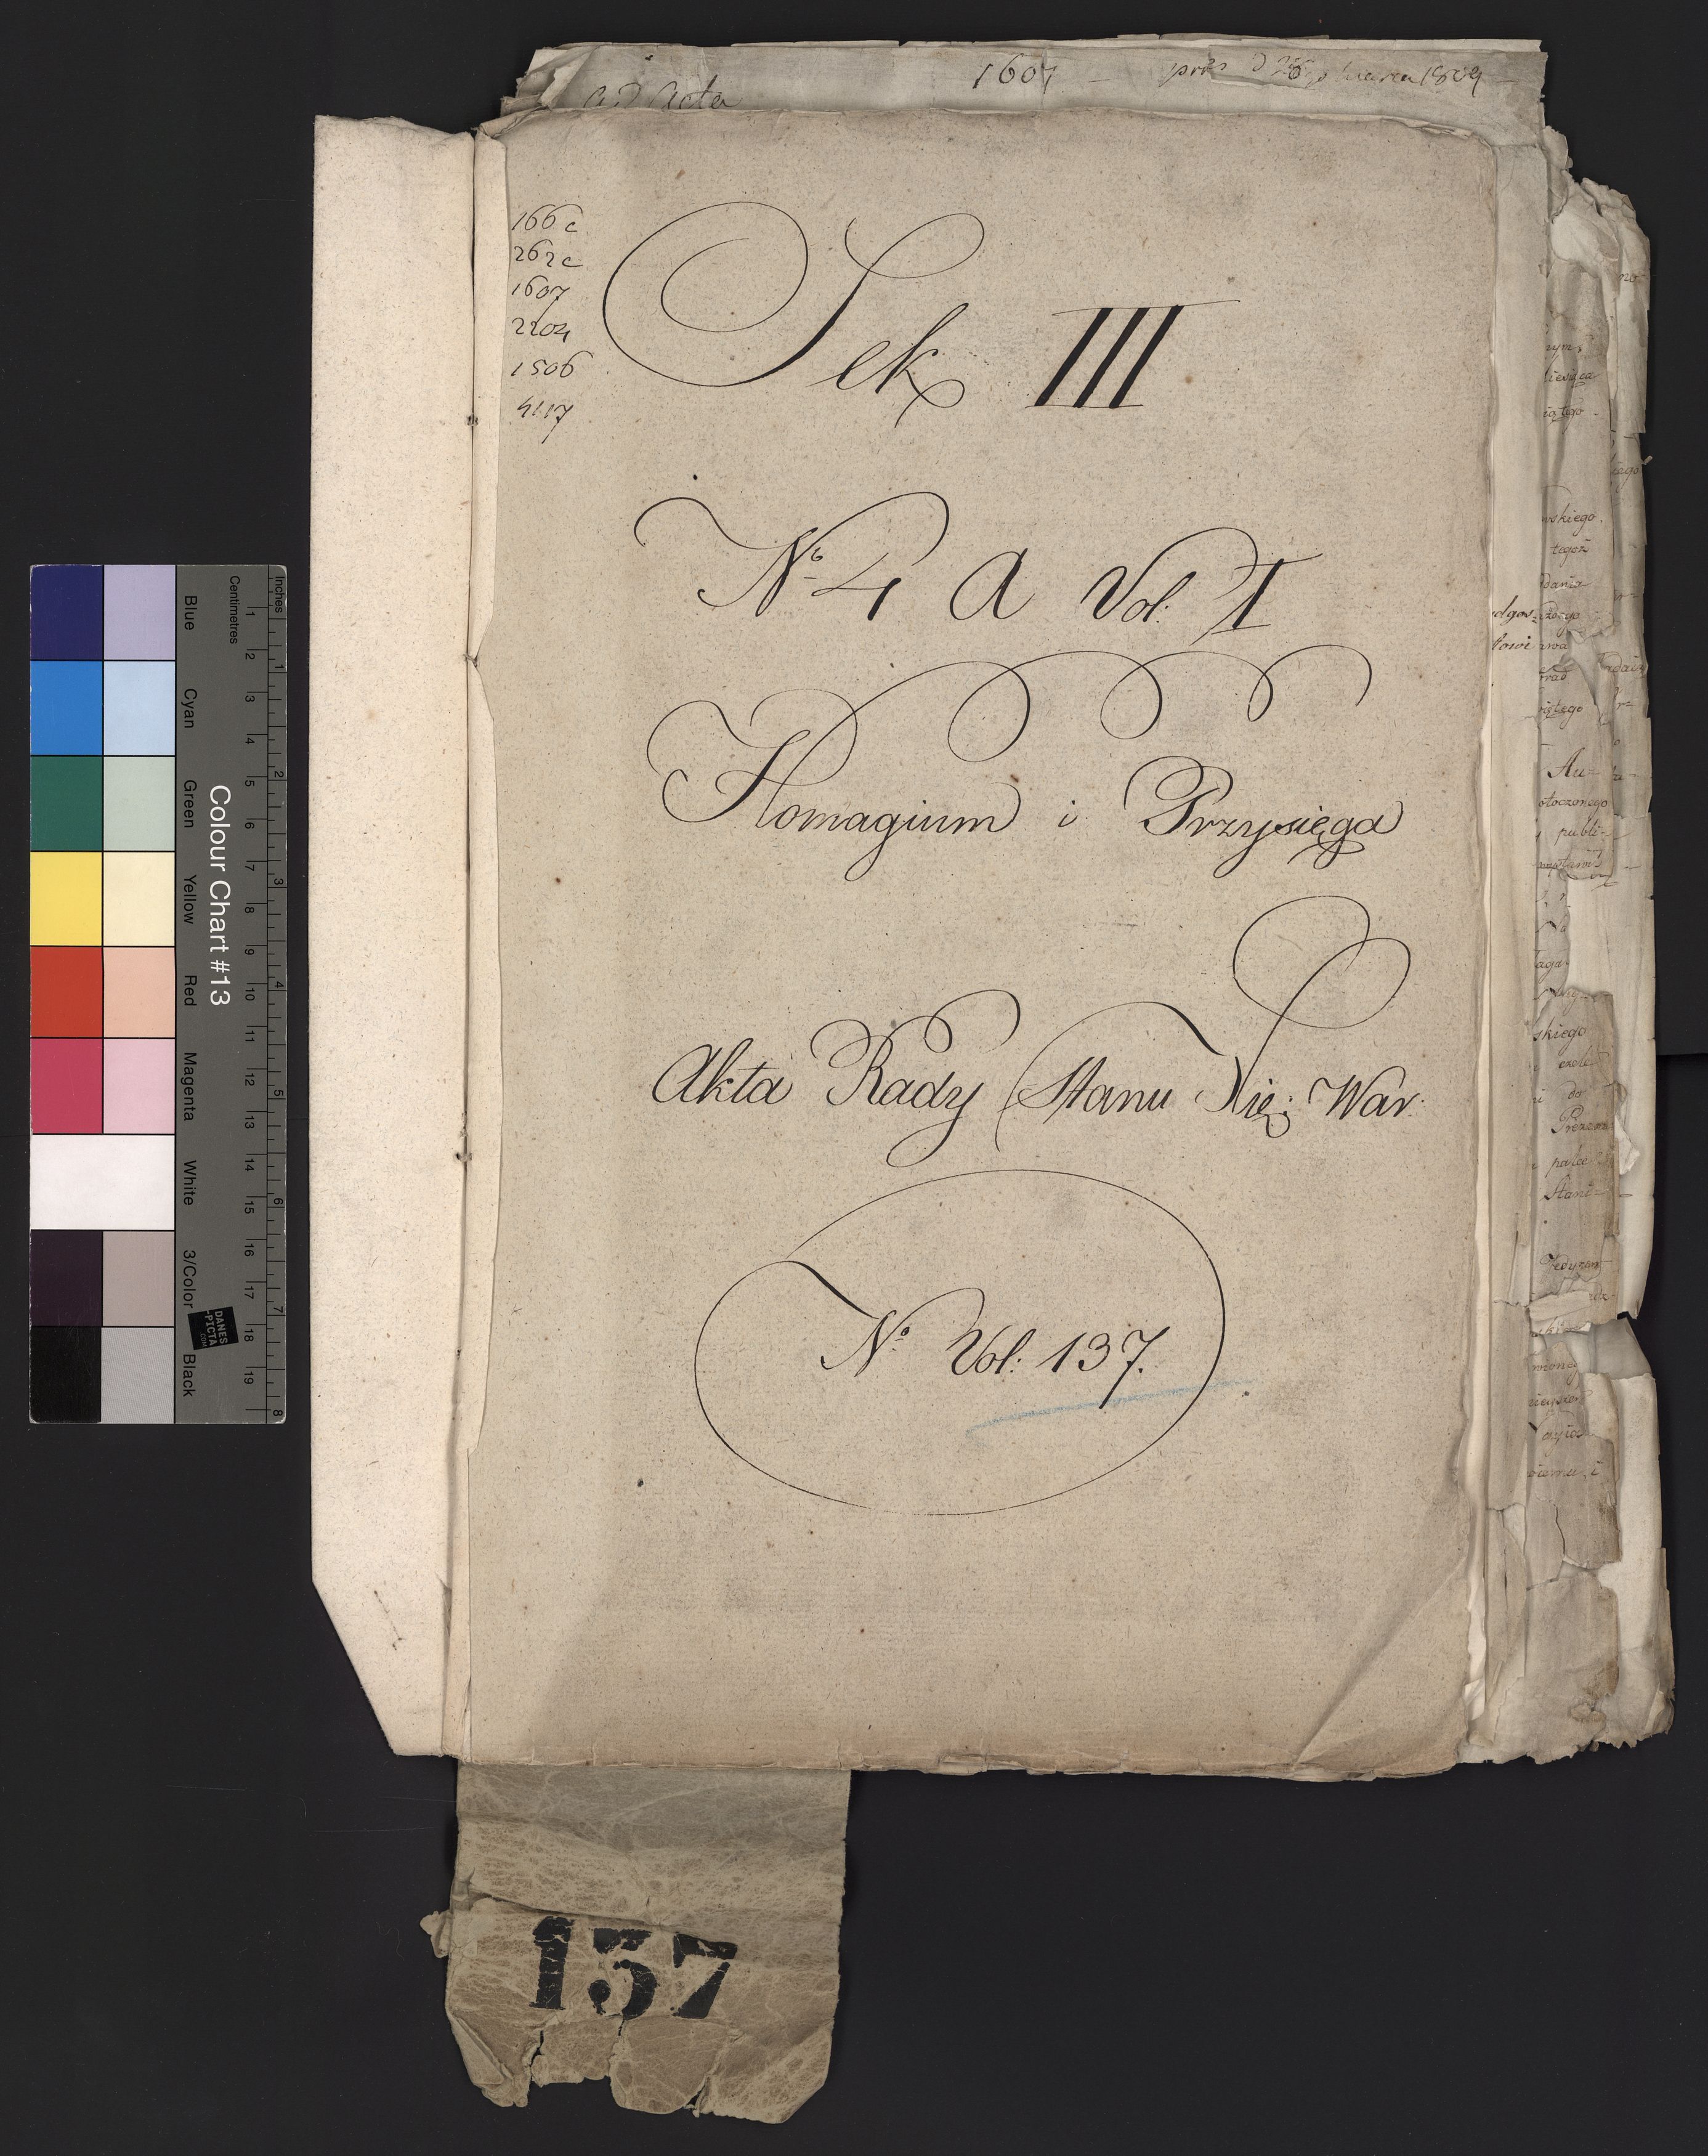 1607 — 1809
ad Acta
166 c
262 c
1607
2204
1506
4117
Sek III
No 4 A Vol: I
Homagium i Przysięga
Akta Rady Stanu Xię: War:
No Vol: 137.
137
wskiego.
tegoż
dania
Au=
otoczonego
publi=
skiego
do
palce
Stani=
Inches
Centimetres
1
2
3
4
5
6
7
8
9
10
11
12
13
14
15
16
17
18
19
1
2
3
4
5
6
7
8
Colour Chart #13
Blue
Cyan
Green
Yellow
Red
Magenta
White
3/Color
Black
DANES
PICTA
.COM